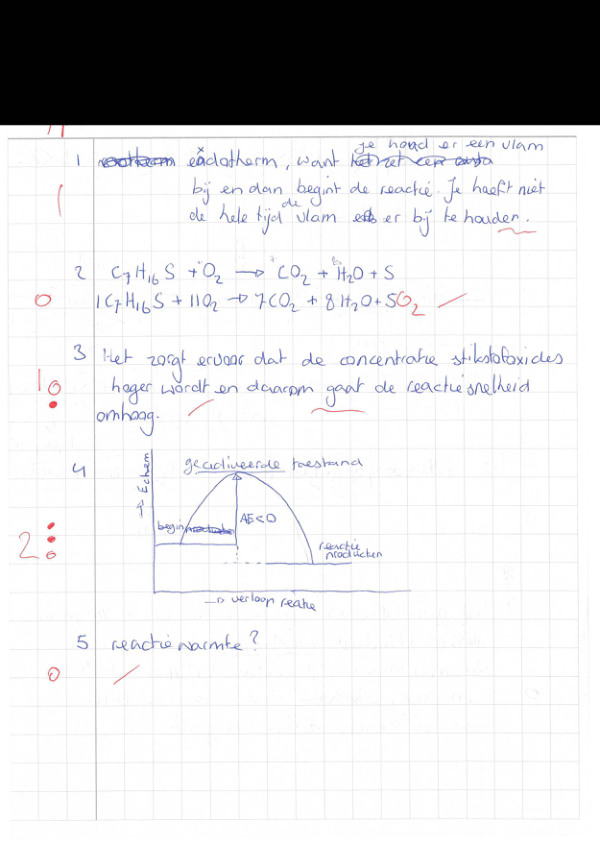 1 exotherm, want je houd er een vlam
bij en dan begint de reactie. Je hoeft niet
1 de hele tijd de vlam er bij te houden.
2 C7H16S + O2 → CO2 + H2O + S
0 1C7H16S + 11O2 → 7CO2 + 8H2O + SO2
3 Het zorgt ervoor dat de concentratie stikstofoxides
10 hoger wordt en daarom gaat de reactiesnelheid
omhoog.
4 geactiveerde toestand
→ Echem
begin ΔE<0
2 reactie
producten
→ verloop reatie
5 reactiewarmte?
0